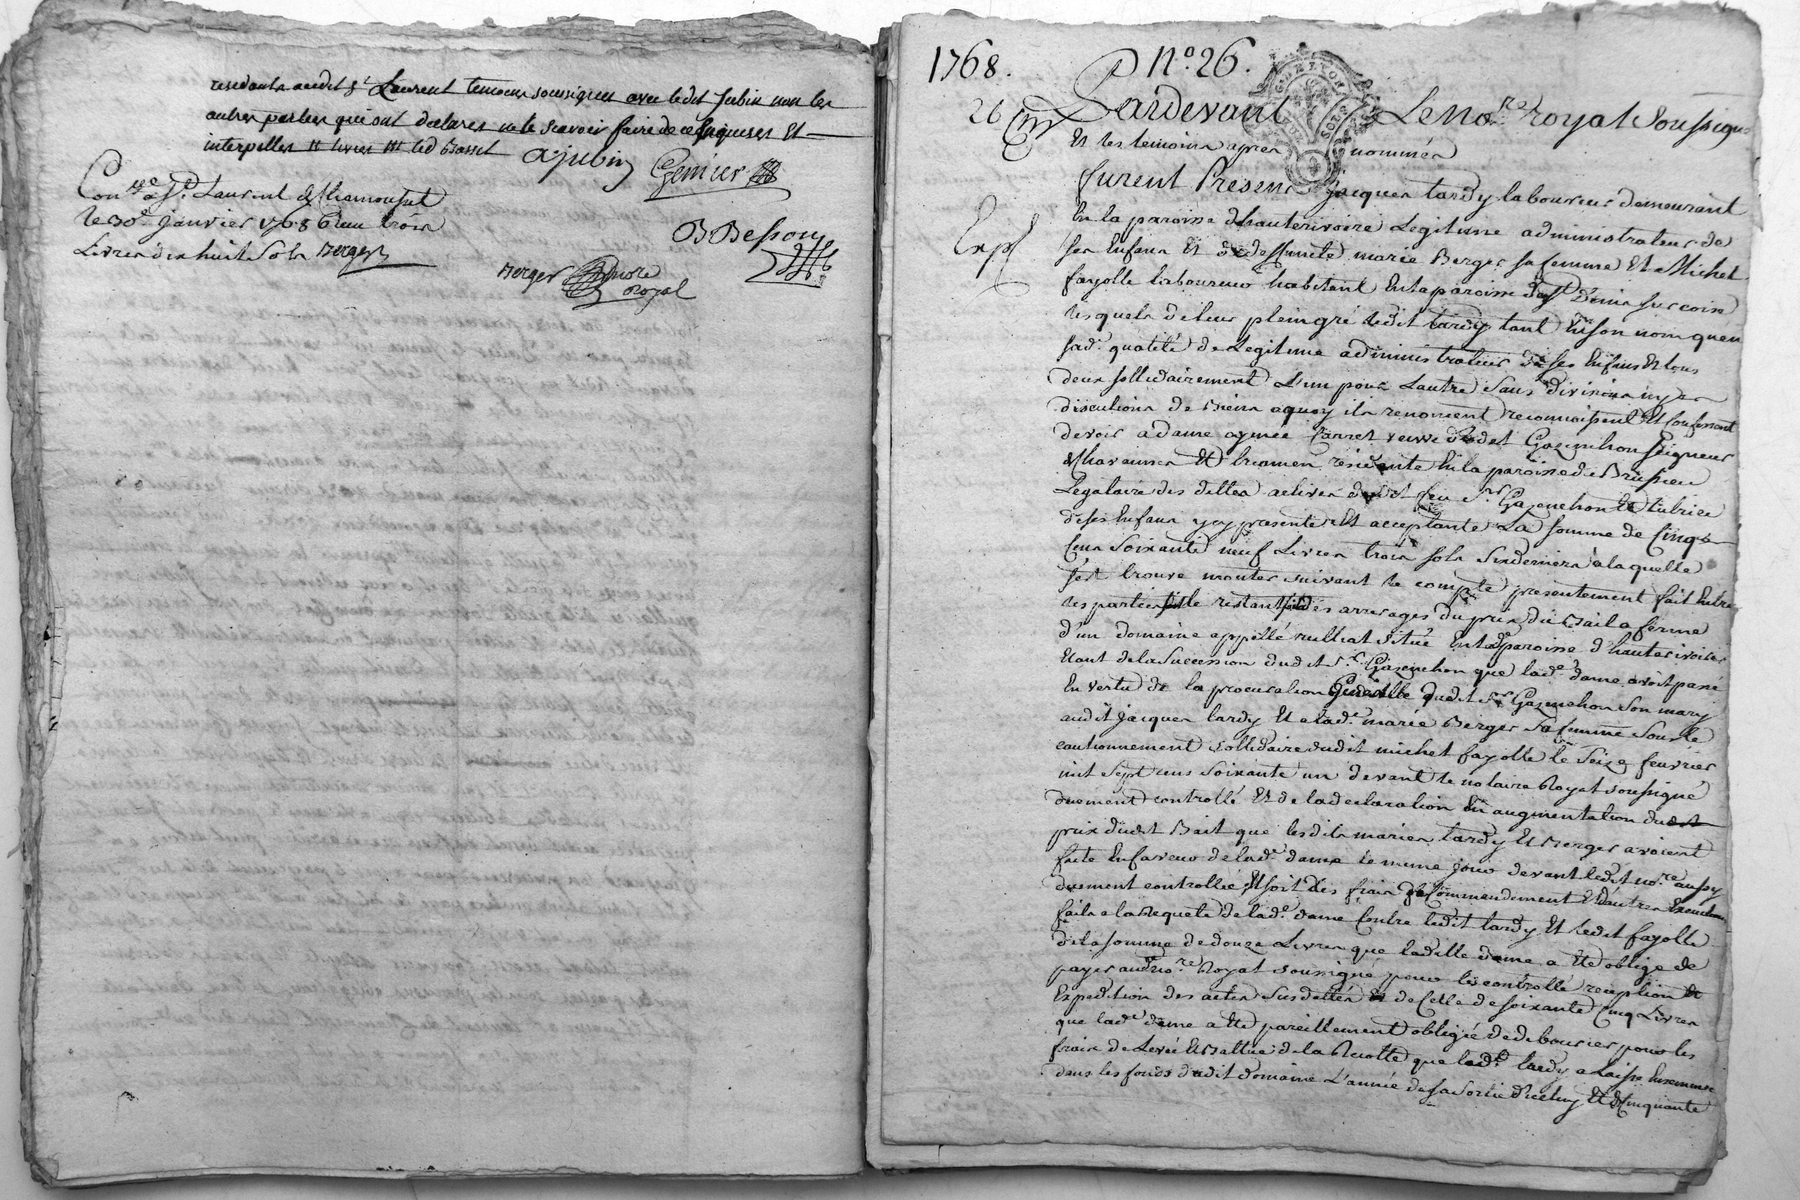 residants audit St Laurent temoins soussignes avec ledit Jubin non les
autres parties qui ont déclarés ne le scavoir faire de ce enquises Et
interpelles
Ajubin Genier
Conlle a St Laurent de Chamousset
le 30e janvier 1768 Reçu trois
Livres dix huit sols Berger
BBesson
Berger nore
Royal
1768. No. 26.
26 Pardevant Le Nore royal Soussigné
Et les temoins apres nommés
furent Presens jacques tardy laboureur demeurant
Exp
En la paroisse d'hauterivoire Legitime administrateur de
ses Enfans Et de deffunte marie Berger sa femme Et Michel
fayolle laboureur habitant En la paroisse de St Denis sur coise
lesquels de leur plein gré ledit tardy tant En son nom quen
sade qualité de Legitime administrateur de ses Enfans Et tous
deux sollidairement L'un pour Lautre Sans division ny
discutions de Biens aquoy ils renoncent reconnoissent Et Confessent
devoir a dame aymée Carret veuve dudet Gazenchon Seigneur
de Chavannes Et residente En la paroisse de Brussieu
Legataire des dettes actives dudit feu Sr Gazenchon Et tutrice
de ses Enfans yey presente Et acceptante La somme de Cinq
Cens Soixante neuf Livres trois sols Six deniers a laquelle
s'est trouve monter suivant le compte presentement fait Entre
les parties le restant des arrerages du prix du Bail a ferme
d'un domaine appellé rulliat situé En lade paroisse d'hauterivoire
Etant de la Succession dudit Sr Gazenchon que lade dame avoit passé
En vertu de la procuration Generalle dudit Sr Gazenchon Son mary
audit jacques tardy Et a lade marie Berger Sa femme Sous le
cautionnement sollidaire dudit michel fayolle le Seize fevrier
mil Sept cens Soixante un devant le notaire Royal soussigné
duement controllé Et de la declaration En augmentation du
prix dudit Bail que lesdits maries tardy Et Berger avoient
faite En faveur de lade dame le meme jour devant ledit nore aussy
duement controllée Et soit des frais de Commendement Et d'autres Executions
faits a la Requete de lade dame Contre ledit tardy Et ledit fayolle
de la somme de douze Livres que ladite dame a ete obligé de
payer audit nore Royal soussigné pour les controlle reception Et
Expedition des actes Susdattés Et de Celle de soixante Cinq Livres
que lade dame a ete pareillement obligée de debourser pour les
frais de Levée Et Battue de la Recolte que lade tardy a laissé
dans les fonds dudit domaine L'année de sa Sortie d'icelluy Et de Cinquante